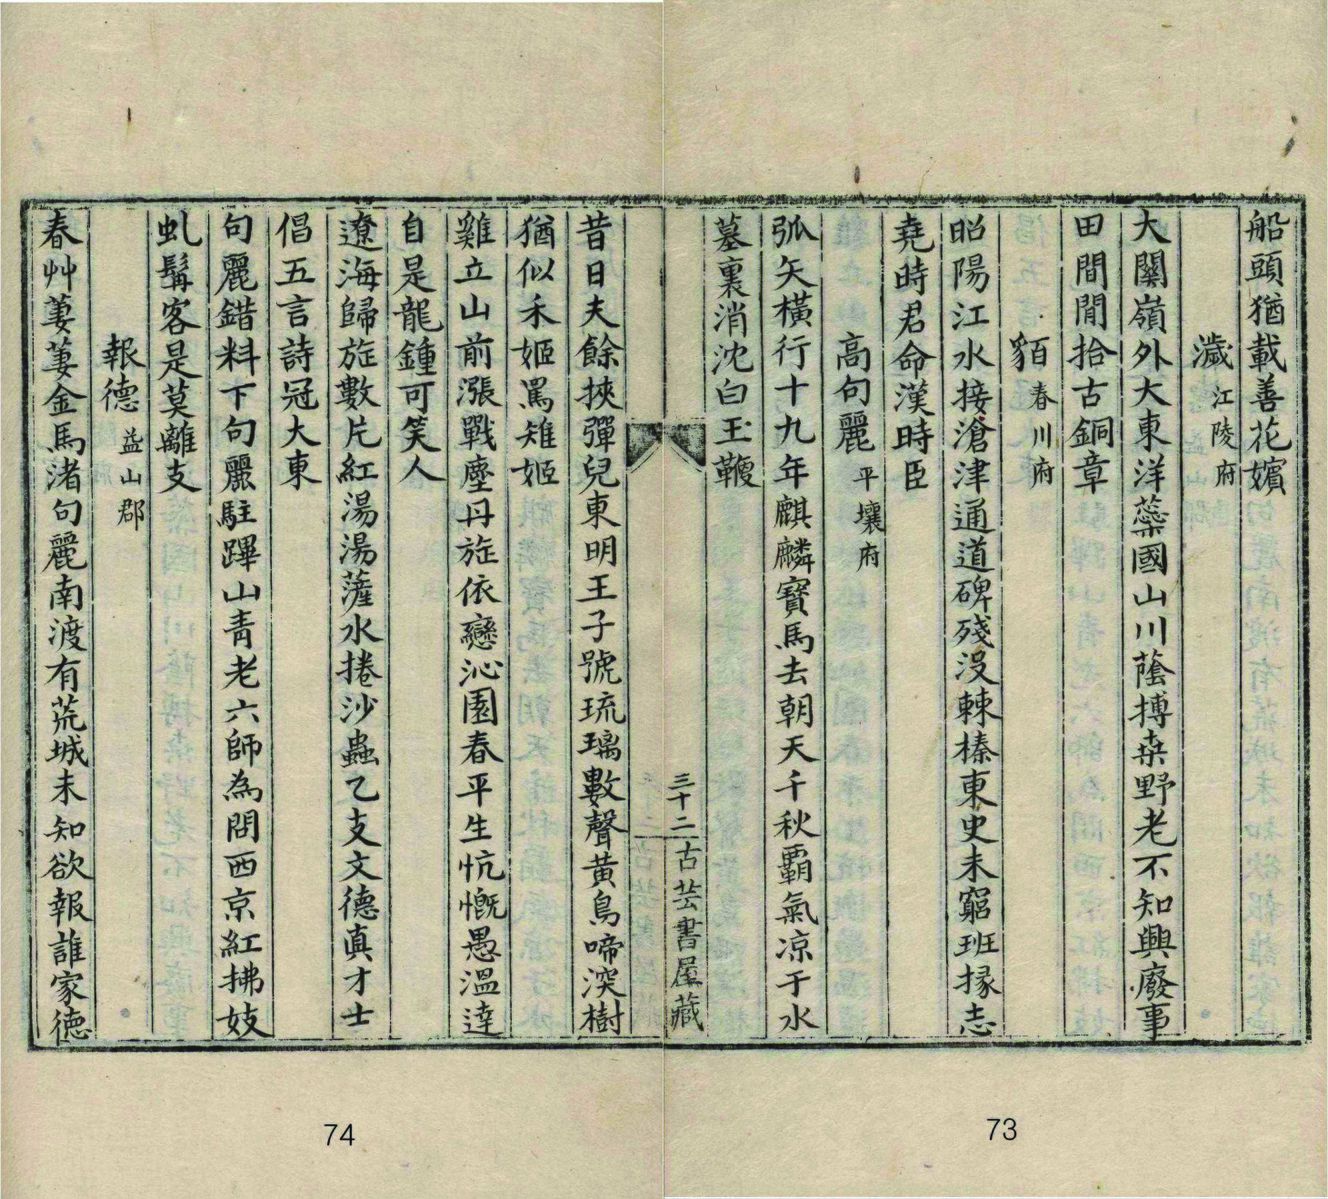 船頭猶載善花嬪
濊江陵府
大關嶺外大東洋蘂國山川蔭搏桒野老不知興廢事
田間閒拾古銅章
貊春川府
昭陽江水接滄津通道碑殘没棘榛東史未窮班掾志
堯時君命漢時臣
高句麗平壤府
弧矢橫行十九年麒麟寶馬去朝天千秋霸氣凉于水
墓裏消沈白玉鞭
三十二
古芸書屋藏
昔日夫餘挾彈兒東明王子號琉璃數聲黃鳥啼深樹
猶似禾姬罵雉姬
雞立山前漲戰塵丹旌依戀沁園春平生忼慨愚溫達
自是龍鍾可笑人
遼海歸旌數片紅湯湯薩水捲沙蟲乙支文德眞才士
倡五言詩冠大東
句麗錯料下句麗駐蹕山青老六師為問西京紅拂妓
虬髯客是莫離支
報德益山郡
春艸萋萋金馬渚句麗南渡有荒城未知欲報誰家德
73
74